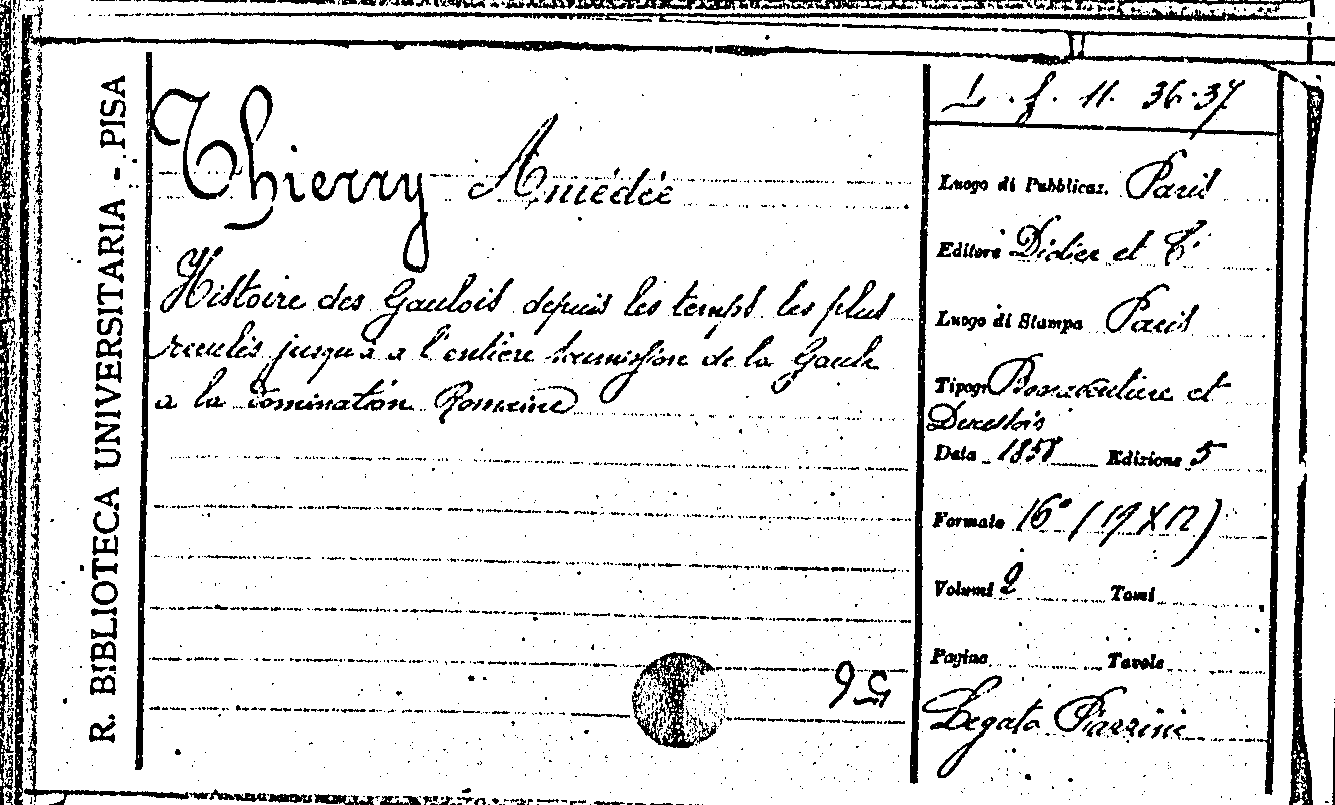 R. BIBLIOTECA UNIVERSITARIA - PISA
Thierry Amédée
Histoire des Gaulois depuis les temps les plus
reculés jusqu'à a l'entière soumission de la Gaule
a la domination Romaine
I. f. 11. 36-37
Luogo di Pubblicaz. Paris
Editore Didier et C.
Luogo di Stampa Paris
Tipogr. Bonaventure et
Ducessois
Data 1858 Edizione 5
Formato 16° (19 X 12)
Volumi 2 Tomi
Pagine Tavole
Legato